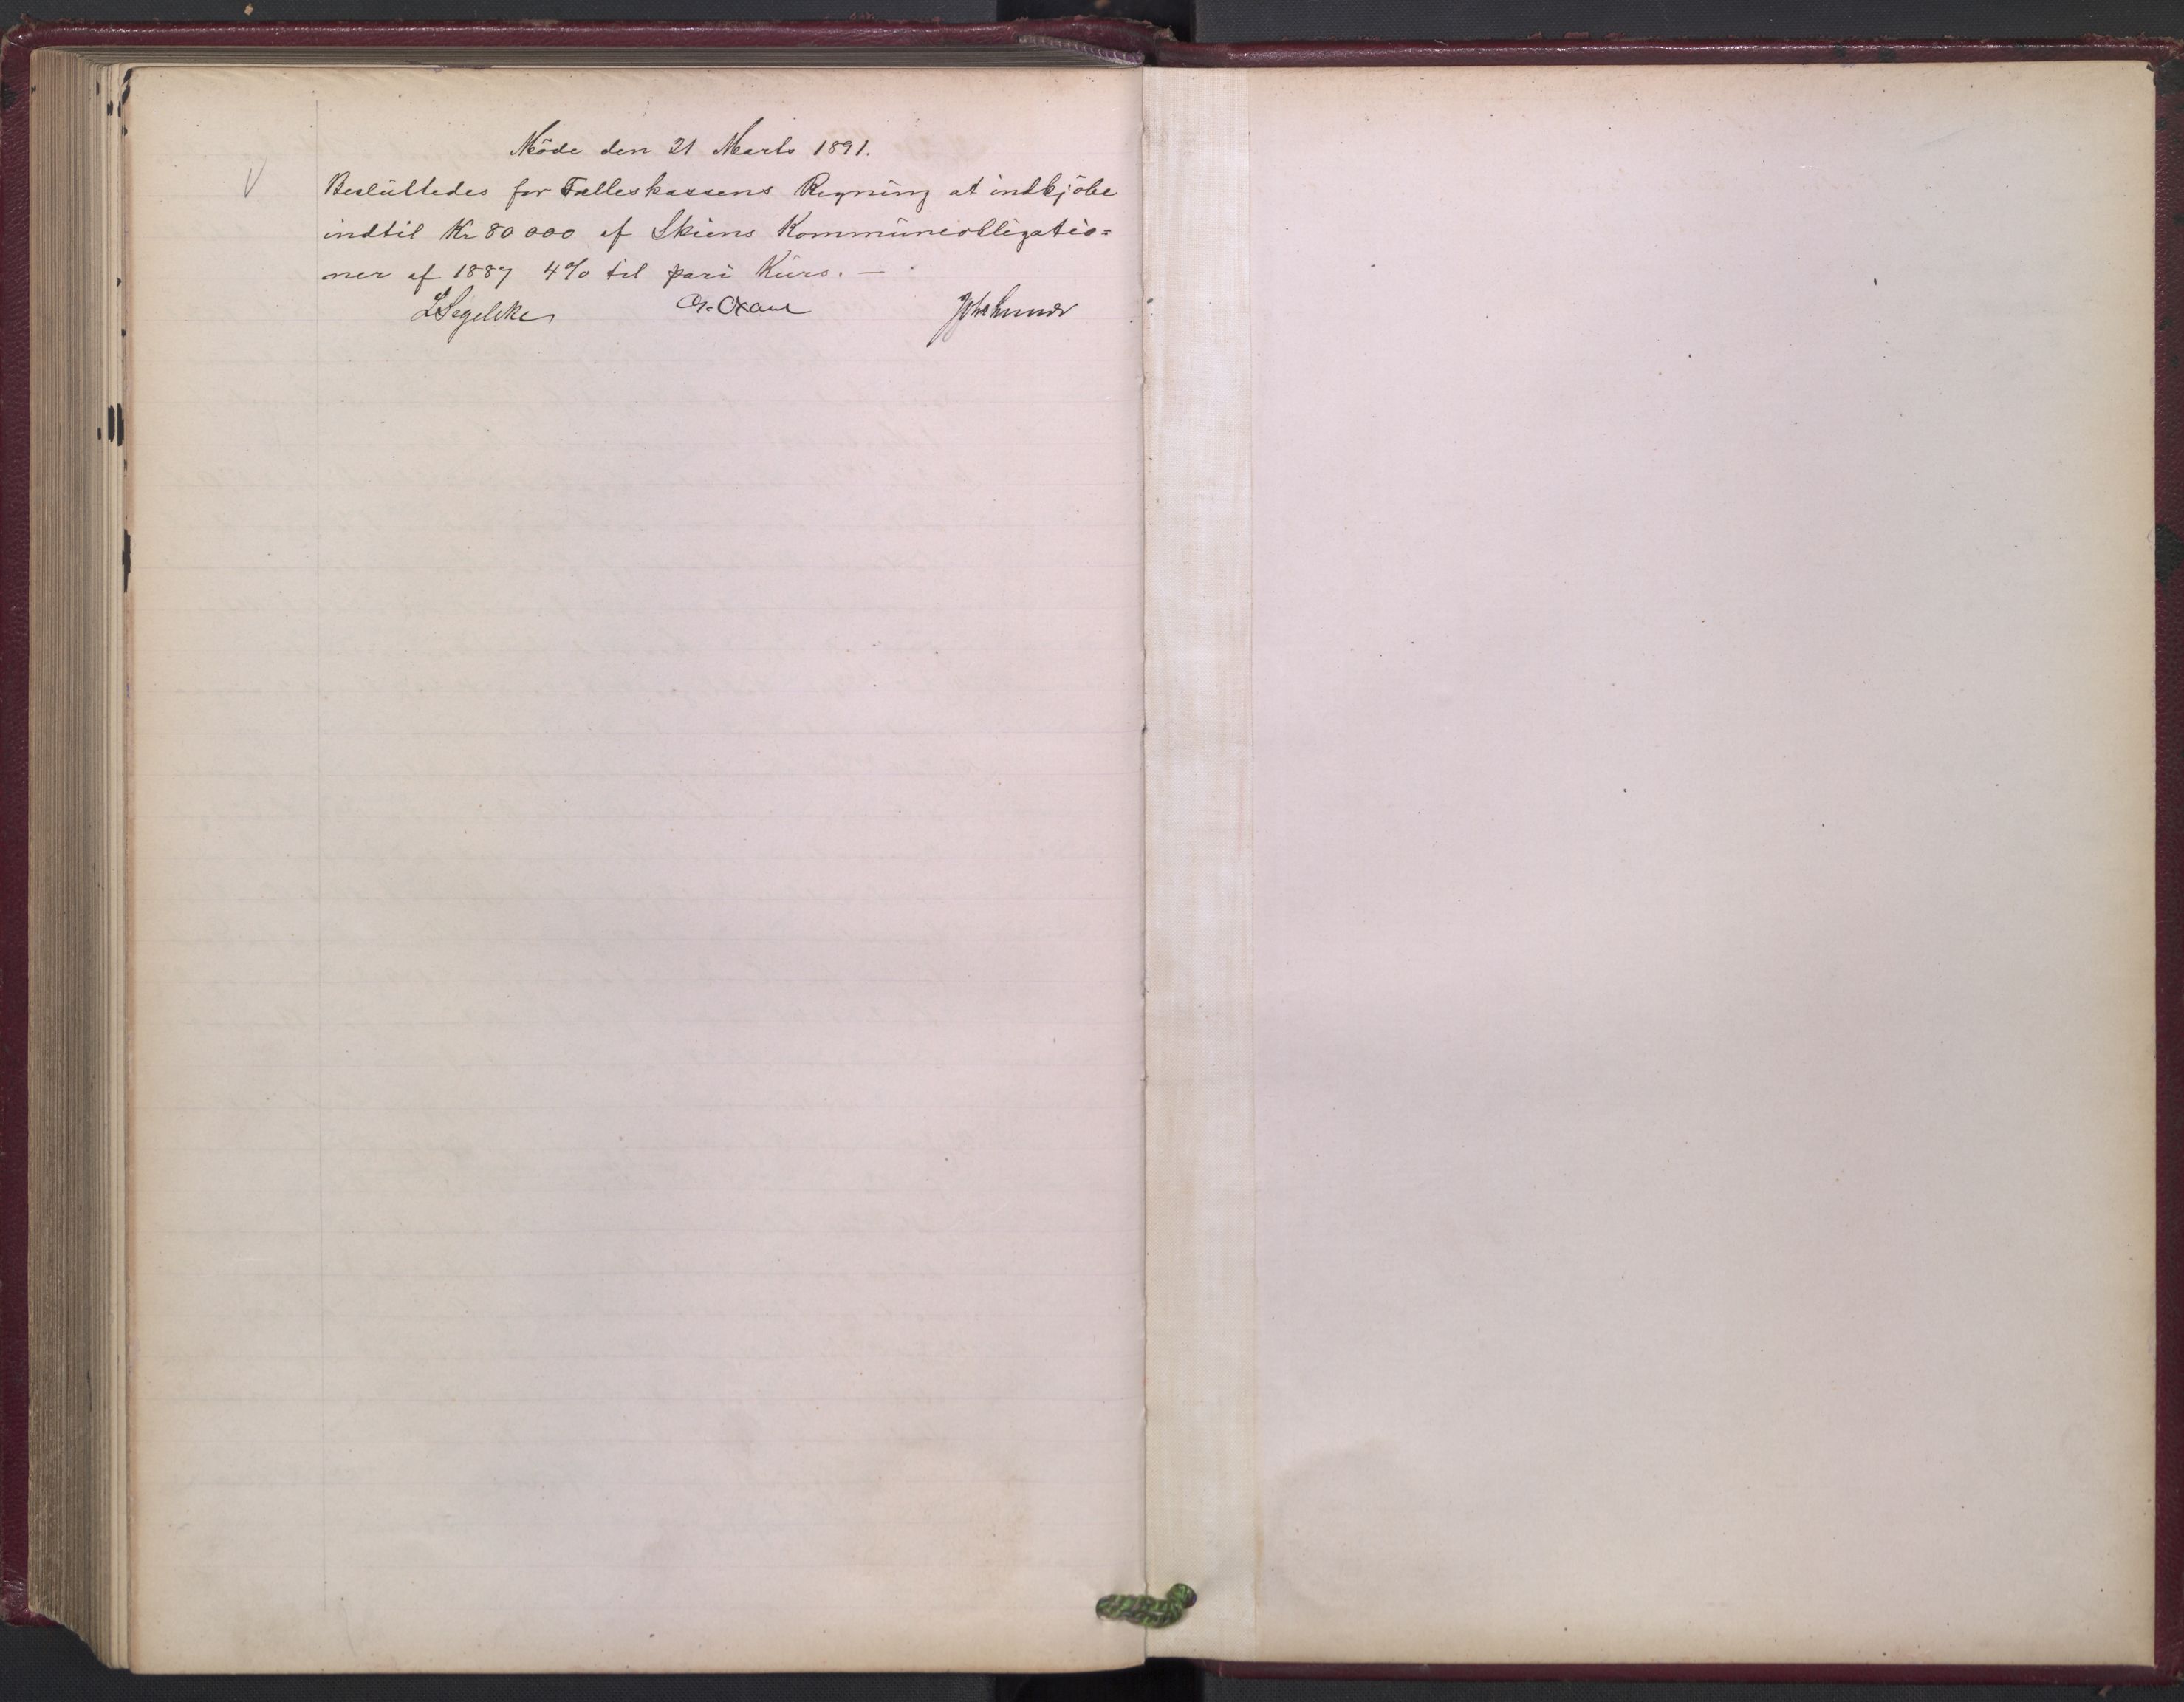 Möde den 21 Marts 1891.
V Beslüttedes for Fælleskassens Regning at indkjöbe
indtil Kr 80 000 af Skiens Kommüneobligatio=
ner af 1887 4% til pari Kürs. —
LSegelcke